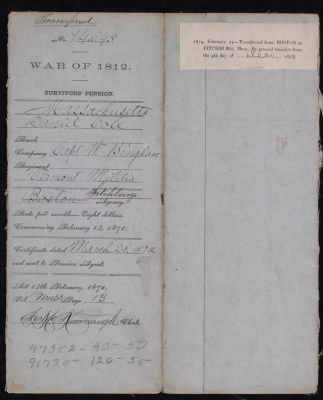 Transferred
No. 14548
WAR OF 1812.
SURVIVORS PENSION.
Massachusetts
Daniel Cole
Rank,
Company Capt W. Bingham
Regiment
Vermont Militia
Boston Fitchburg
Agency.
Rate per month—Eight dollars.
Commencing February 14, 1871.
Certificate dated March 20, 1872
and sent to Pension Agent.
Act 14th February, 1871.
Vol. Mass Page 13
Clerk.
47352 - 40 - 50
91730 - 120 - 55
1874, February 27—Transferred from BOSTON to
FITCHBURG, Mass. By general transfer from
the 4th day of 1873